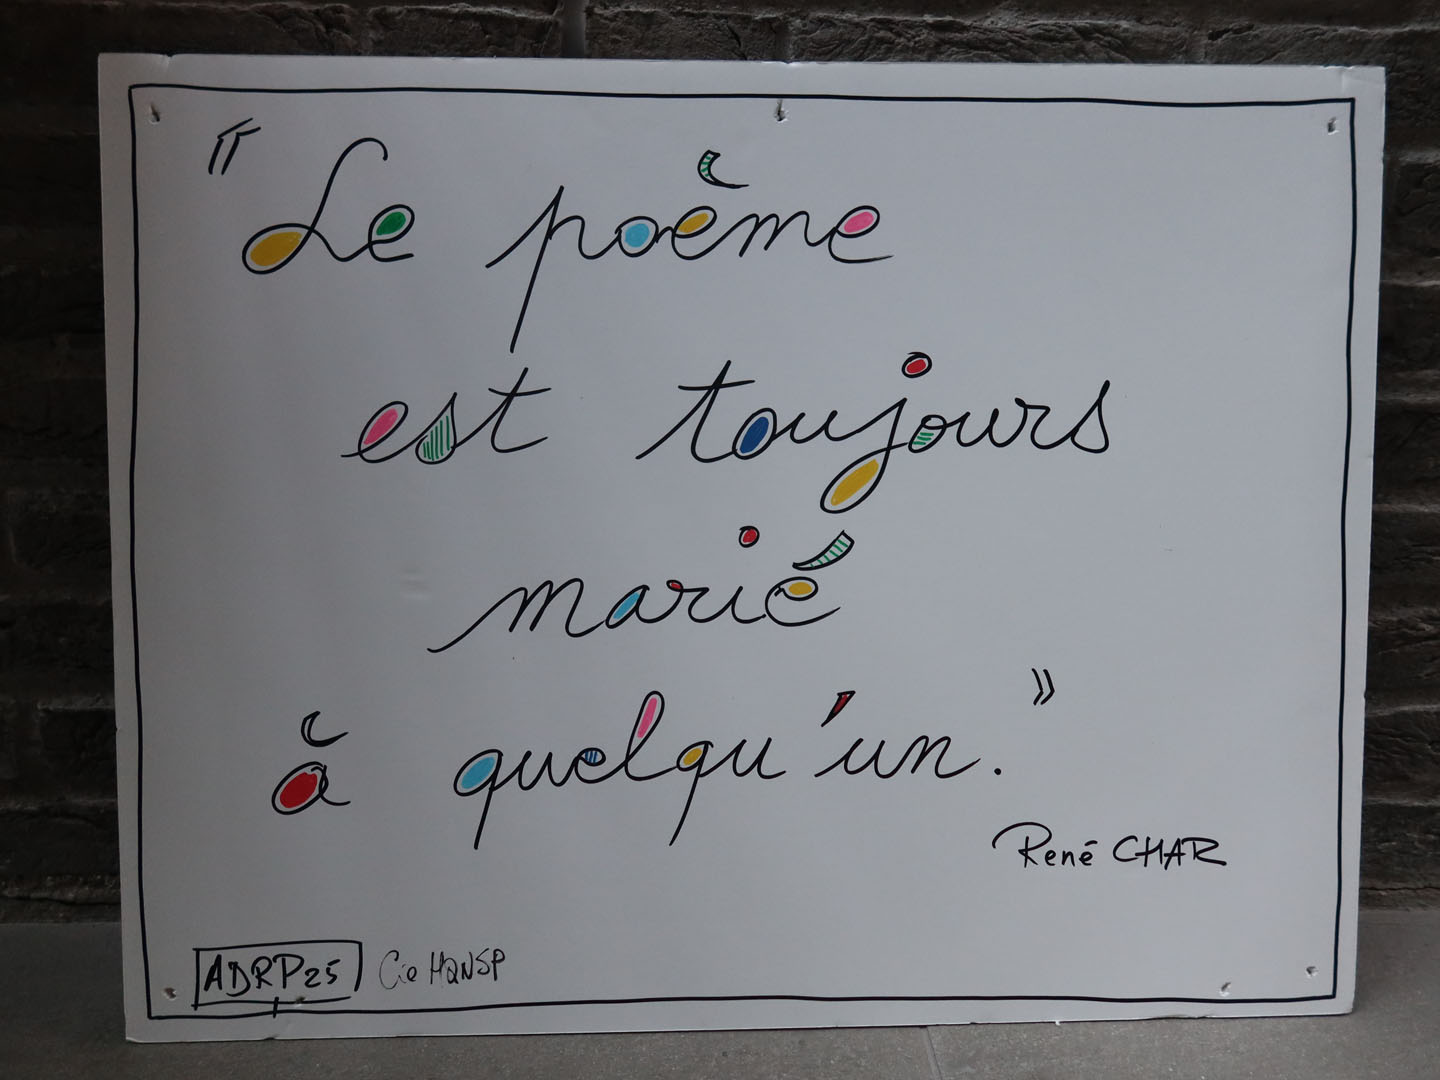 "Le poème
est toujours
marié
à quelqu'un."
René CHAR
ADRP25 Cie HQNSP